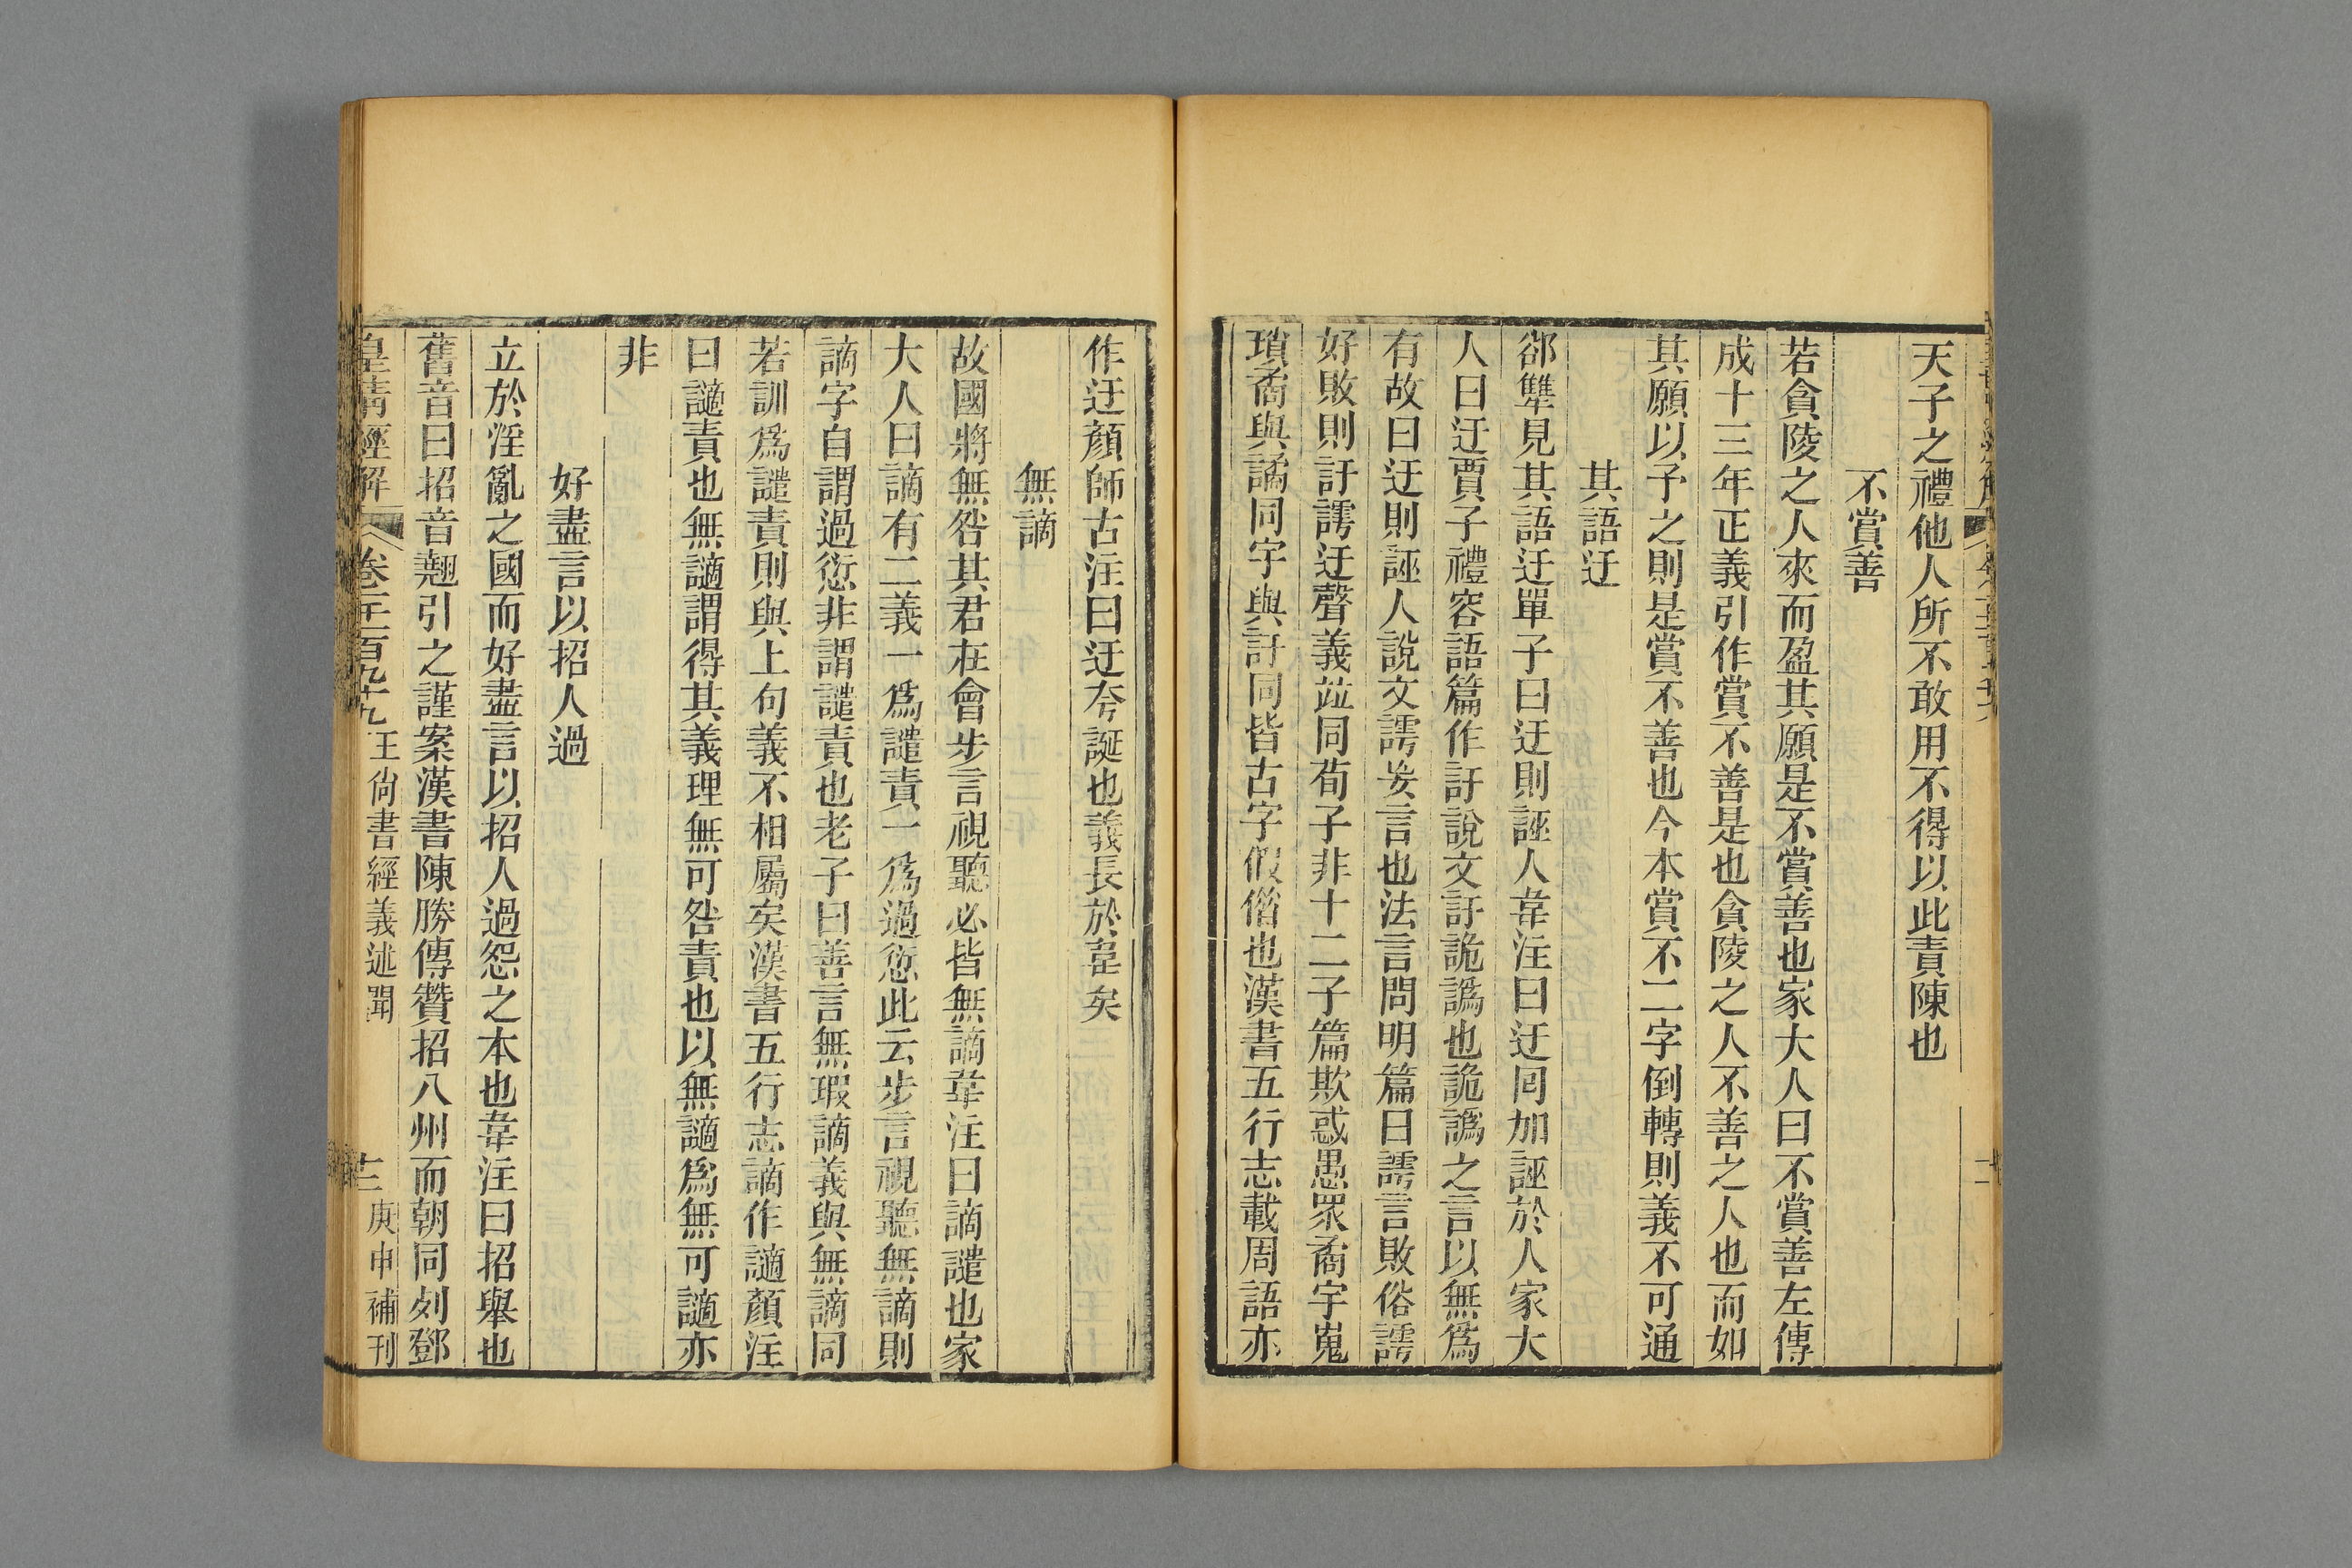 天子之禮他人所不敢用不得以此責陳也
不賞善
若貪陵之人來而盈其願是不賞善也家大人曰不賞善左傳
成十三年正義引作賞不善是也貪陵之人不善之人也而如
其願以予之則是賞不善也今本賞不二字倒轉則義不可通
其語迂
郤犨見其語迂單子曰迂則誣人韋注曰迂回加誣於人家大
人曰迂賈子禮容語篇作訏說文訏詭譌也詭譌之言以無爲
有故曰迂則誣人說文謣妄言也法言問明篇曰謣言敗俗謣
好敗則訏謣迂聲義竝同荀子非十二子篇欺惑愚眾矞宇嵬
瑣矞與譎同宇與訏同皆古字假借也漢書五行志載周語亦
作迂顏師古注曰迂夸誕也義長於韋矣
無謫
故國將無咎其君在會步言視聽必皆無謫韋注曰謫譴也家
大人曰謫有二義一爲譴責一爲過愆此云步言視聽無謫則
謫字自謂過愆非謂譴責也老子曰善言無瑕謫義與無謫同
若訓爲譴責則與上句義不相屬矣漢書五行志謫作讁顏注
曰讁責也無讁謂得其義理無可咎責也以無讁爲無可讁亦
非
好盡言以招人過
立於淫亂之國而好盡言以招人過怨之本也韋注曰招舉也
舊音曰招音翹引之謹案漢書陳勝傳贊招八州而朝同列鄧
皇清經解 卷千一百九十九 王尙書經義述聞 十二 庚申補刊